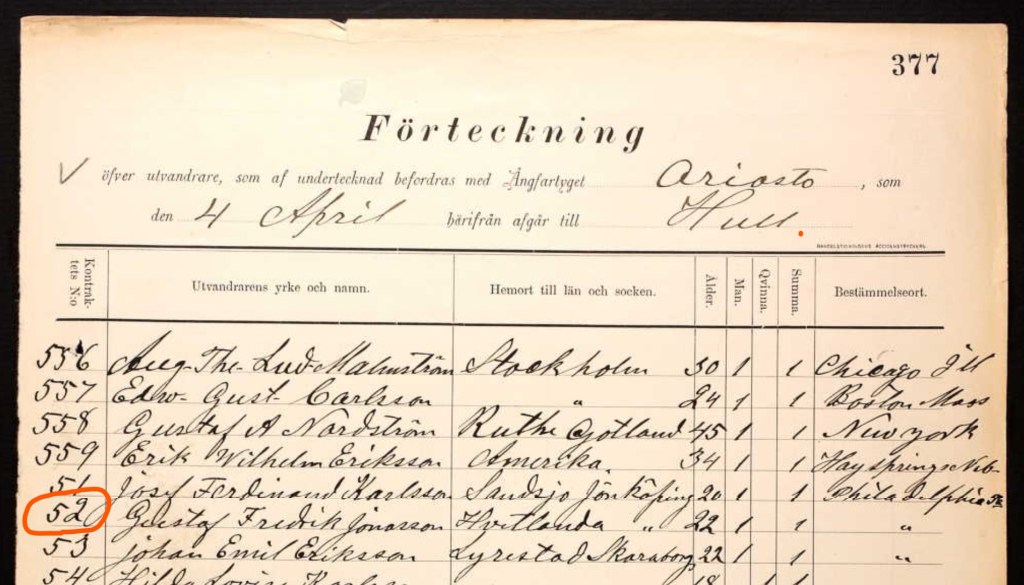 377
Förteckning
öfver utvandrare, som af undertecknad befordras med Ångfartyget Ariosto, som
den 4 April härifrån afgår till Hull.
Kontrak-tets N:o Utvandrarens yrke och namn. Hemort till län och socken. Ålder. Man. Qvinna. Summa. Bestämmelseort.
556 Aug. The. Lud. Malmström Stockholm 30 1 1 Chicago Ill
557 Edw. Gust. Carlsson " 24 1 1 Boston Mass
558 Gustaf A Nordström Ruthe Gotland 45 1 1 New york
559 Erik Wilhelm Eriksson Amerika. 34 1 1 Haysprings Neb.
51 Josef Ferdinand Karlsson Sandsjö Jönköping 20 1 1 Philadelphia
52 Gustaf Fredrik Jonasson Hvetlanda " 22 1 1 "
53 Johan Emil Eriksson Lyrestad Skaraborg 22 1 1 "
54 Hilda 18 1 1